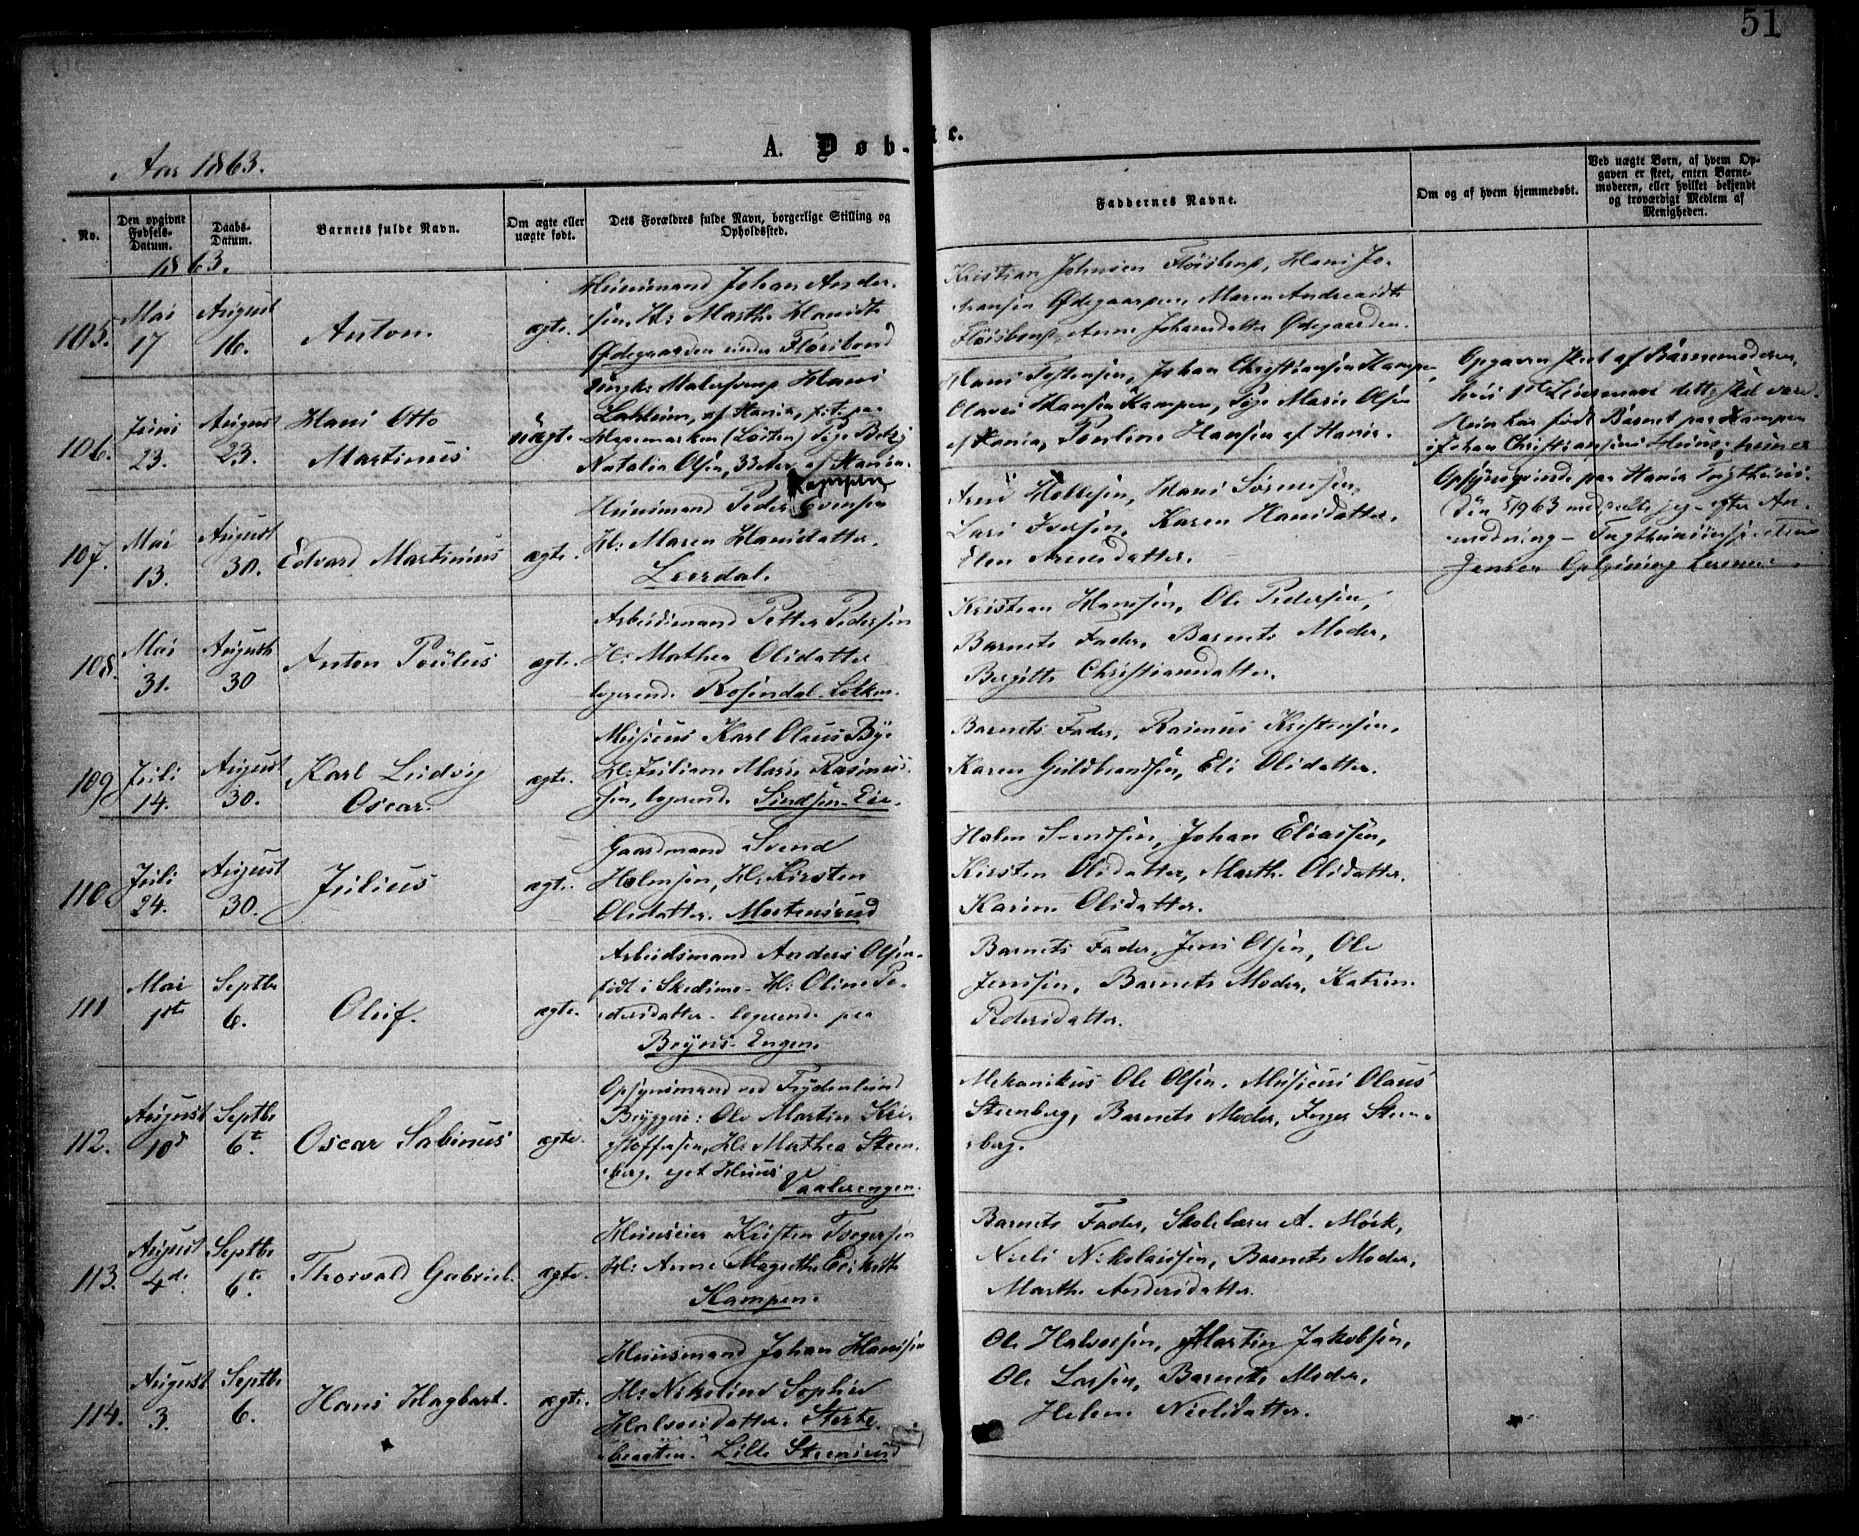 51
A. Døb-
te.
Aar 1863.
No.
Den opgivne Fødsels-Datum.
Daabs-Datum.
Barnets fulde Navn.
Om ægte eller uægte født.
Dets Forældres fulde Navn, borgerlige Stilling og Opholdssted.
Faddernes Navne.
Om og af hvem hjemmedøbt.
Ved uægte Børn, af hvem Opgaven er skeet, enten Barnemoderen, eller hvilket bekjendt og troværdigt Medlem af Menigheden.
1863.
105.
Mai
17
August
16.
Anton.
ægte.
Huusmand Johan Ander-
sen, H: Marthe Hansdt
Ødegaarden under Fløisbond
Kristian Johnsen Fløisbonp, Hans Jo-
hansen Ødegaarden, Maren Andreasdt
Anne Johansdatter Ødegaarden.
106.
Juni
23.
August
23.
Hans Otto
Martinus
uægte.
Ungk: Hans
(Løiten) Pige Betzy
Natalia Olsen, 33 Aar af Hania.
Kampen
Hans Johan Christiansen Kampen,
Olaves Hansen Kampen, Pige Marie Olsen
af Hania, Pauline Hansen af Hania.
Opgaven skeet af Barnemoderen,
dette skal være
har født Barnet paa Kampen
i Johan Christiansens Huus;
paa Hania Tugthuus.
63 meddeelte jeg efter An-
modning
107.
Mai
13.
August
30.
Edvard Martinius
ægte.
Huusmand Peder Evensen
H: Maren Hansdatter.
Leerdal.
Hans Sørensen,
Lars Iversen, Karen Hansdatter,
Elen
108.
Mai
31.
August
30
Anton Paulus
ægte.
Arbeidsmand Petter Pedersen
H: Mathea Olsdatter
logerende Rosendal-Løkken.
Kristian Hansen, Ole Pedersen,
Barnets Fader, Barnets Moder,
Birgitte Christiansdatter.
109
Juli
14.
August
30.
Karl Ludvig
Oscar.
ægte.
Musicus Karl Olaus Bye
H: Juliane Marie Rasmus-
sen, logerende
Barnets Fader, Rasmus Kristensen,
Karen Guldbrandsen, Eli Olsdatter.
110
Juli
24.
August
30.
Julius
ægte.
Gaardmand Svend
Holmsen, H: Kirsten
Olsdatter. Mortensrud
Holm Svendsen, Johan Eliassen,
Kirsten Olsdatter, Marthe Olsdatter,
Karine Olsdatter.
111
Mai
1ste
Septbr
6.
Oluf.
ægte.
Arbeidsmand Anders Olsen-
født i Skedsmo- H: Oline Pe-
dersdatter- logerende paa
Bryns-Engen.
Barnets Fader, Jens Olsen, Ole
Jenssen, Barnets Moder, Katrine
Pedersdatter.
112.
August
10de
Septbr
6te
Oscar Sabinus
ægte.
Opsynsmand ved Frydenlund
Bryggeri: Ole Martin Kri-
stoffersen, H: Mathea Steen-
berg, eget Huus
Vaalerengen.
Mekanikus Ole Olsen, Musicus Olaus
Steenberg, Barnets Moder, Inger Steen-
berg.
113.
August
4de
Septbr
6te
Thorvald Gabriel.
ægte.
Huuseier Kristen Torgersen
H: Anne Magrethe
Kampen.
Barnets Fader, Skolelærer A. Mørk,
Niels Nikolaisen, Barnets Moder,
Marthe Andersdatter.
114.
August
3.
Septbr
6.
Hans Hagbart.
ægte.
Huusmand Johan Hansen
H: Nikoline Sophie
Halvorsdatter. Sterke-
Lille Steensrud
Ole Halvorsen, Martin Jakobsen,
Ole Larsen, Barnets Moder,
Helene Nielsdatter.